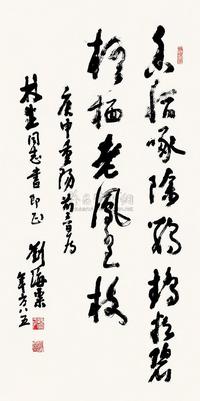 香稻啄餘鸚鵡粒碧
梧栖老鳳皇枝
庚申重陽前三日为
林生同志書即正
劉海粟
年方八五